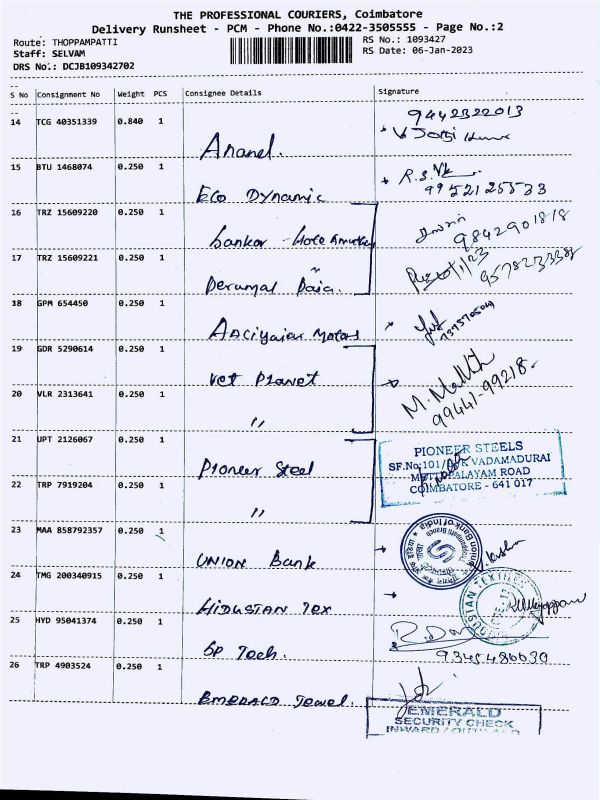 THE PROFESSIONAL COURIERS, Coimbatore
Delivery Runsheet - PCM - Phone No.:0422-3505555 - Page No.:2
Route: THOPPAMPATTI
RS No.: 1093427
Staff: SELVAM
RS Date: 06-Jan-2023
DRS No.: DCJB109342702
S No Consignment No Weight PCS Consignee Details Signature
14 TCG 40351339 0.840 1
9442322013
Anand.
15 BTU 1468074 0.250 1
R.S.
9952125533
Eco Dynamic
16 TRZ 15609220 0.250 1
9842901818
Sankar
17 TRZ 15609221 0.250 1
9578233381
Perumal
18 GPM 654450 0.250 1
Motors
19 GDR 5290614 0.250 1
Vet Planet
M.
99441-99218.
20 VLR 2313641 0.250 1
"
21 UPT 2126067 0.250 1
Pioneer Steel
PIONEER STEELS
SF.No:101/ VADAMADURAI
PALAYAM ROAD
COIMBATORE - 641 017
22 TRP 7919204 0.250 1
"
23 MAA 858792357 0.250 1
UNION Bank
Union Bank of India
24 TMG 200340915 0.250 1
HIDUSTAN Tex
25 HYD 95041374 0.250 1
SP Tech.
9345486639
26 TRP 4903524 0.250 1
EMERALD Jewel.
EMERALD
SECURITY CHECK
INWARD / OUTWARD